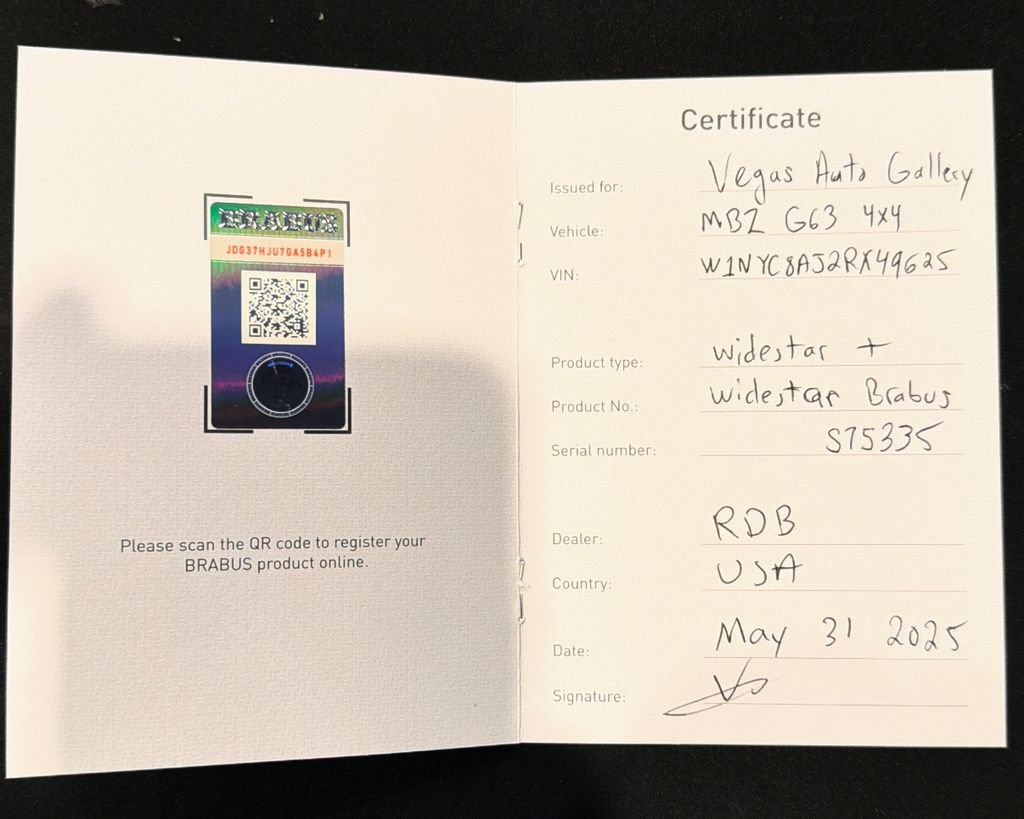 BRABUS
JDG37HJU7GA5B4P1
Please scan the QR code to register your
BRABUS product online.
Certificate
Issued for: Vegas Auto Gallery
Vehicle: MBZ G63 4x4
VIN: W1NYC8AJ2RX49625
Product type: Widestar +
Product No.: Widestar Brabus
Serial number: S75335
Dealer: RDB
Country: USA
Date: May 31 2025
Signature: